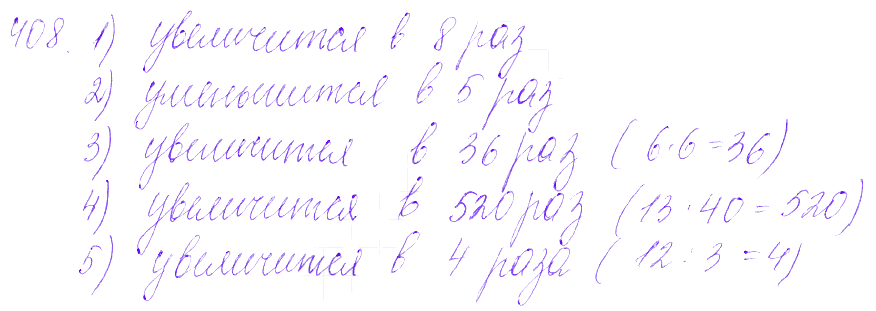 408. 1) увеличится в 8 раз
2) уменьшится в 5 раз
3) увеличится в 36 раз (6·6=36)
4) увеличится в 520 раз (13·40=520)
5) увеличится в 4 раза (12:3=4)